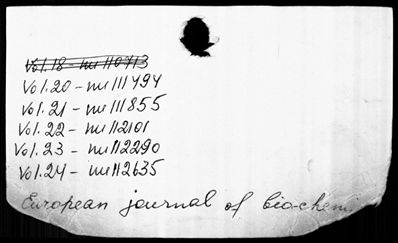 Vol. 18 - nu 110713
Vol. 20 - nu 111494
Vol. 21 - nu 111855
Vol. 22 - nu 112101
Vol. 23 - nu 112290
Vol. 24 - nu 112635
European journal of bio-chemi